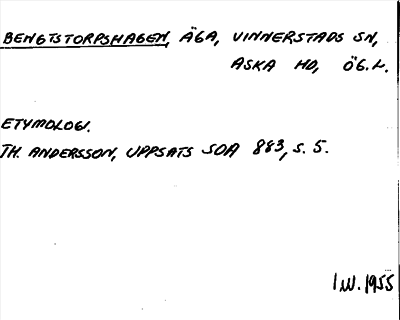 BENGTSTORPSHAGEN, ÄGA, VINNERSTADS SN,
ASKA HD, ÖG.L.
ETYMOLOGI.
TH. ANDERSSON, UPPSATS SOA 883, S. 5.
IW. 1955